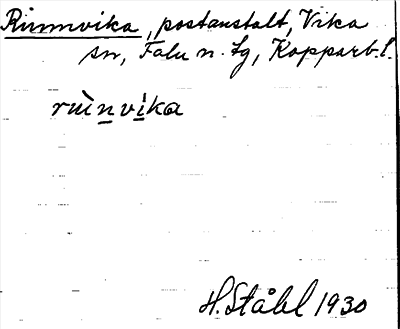 Runnvika, postanstalt, Vika
sn, Falu n. tg, Kopparb. l.
rùnvika
H. Ståhl 1930